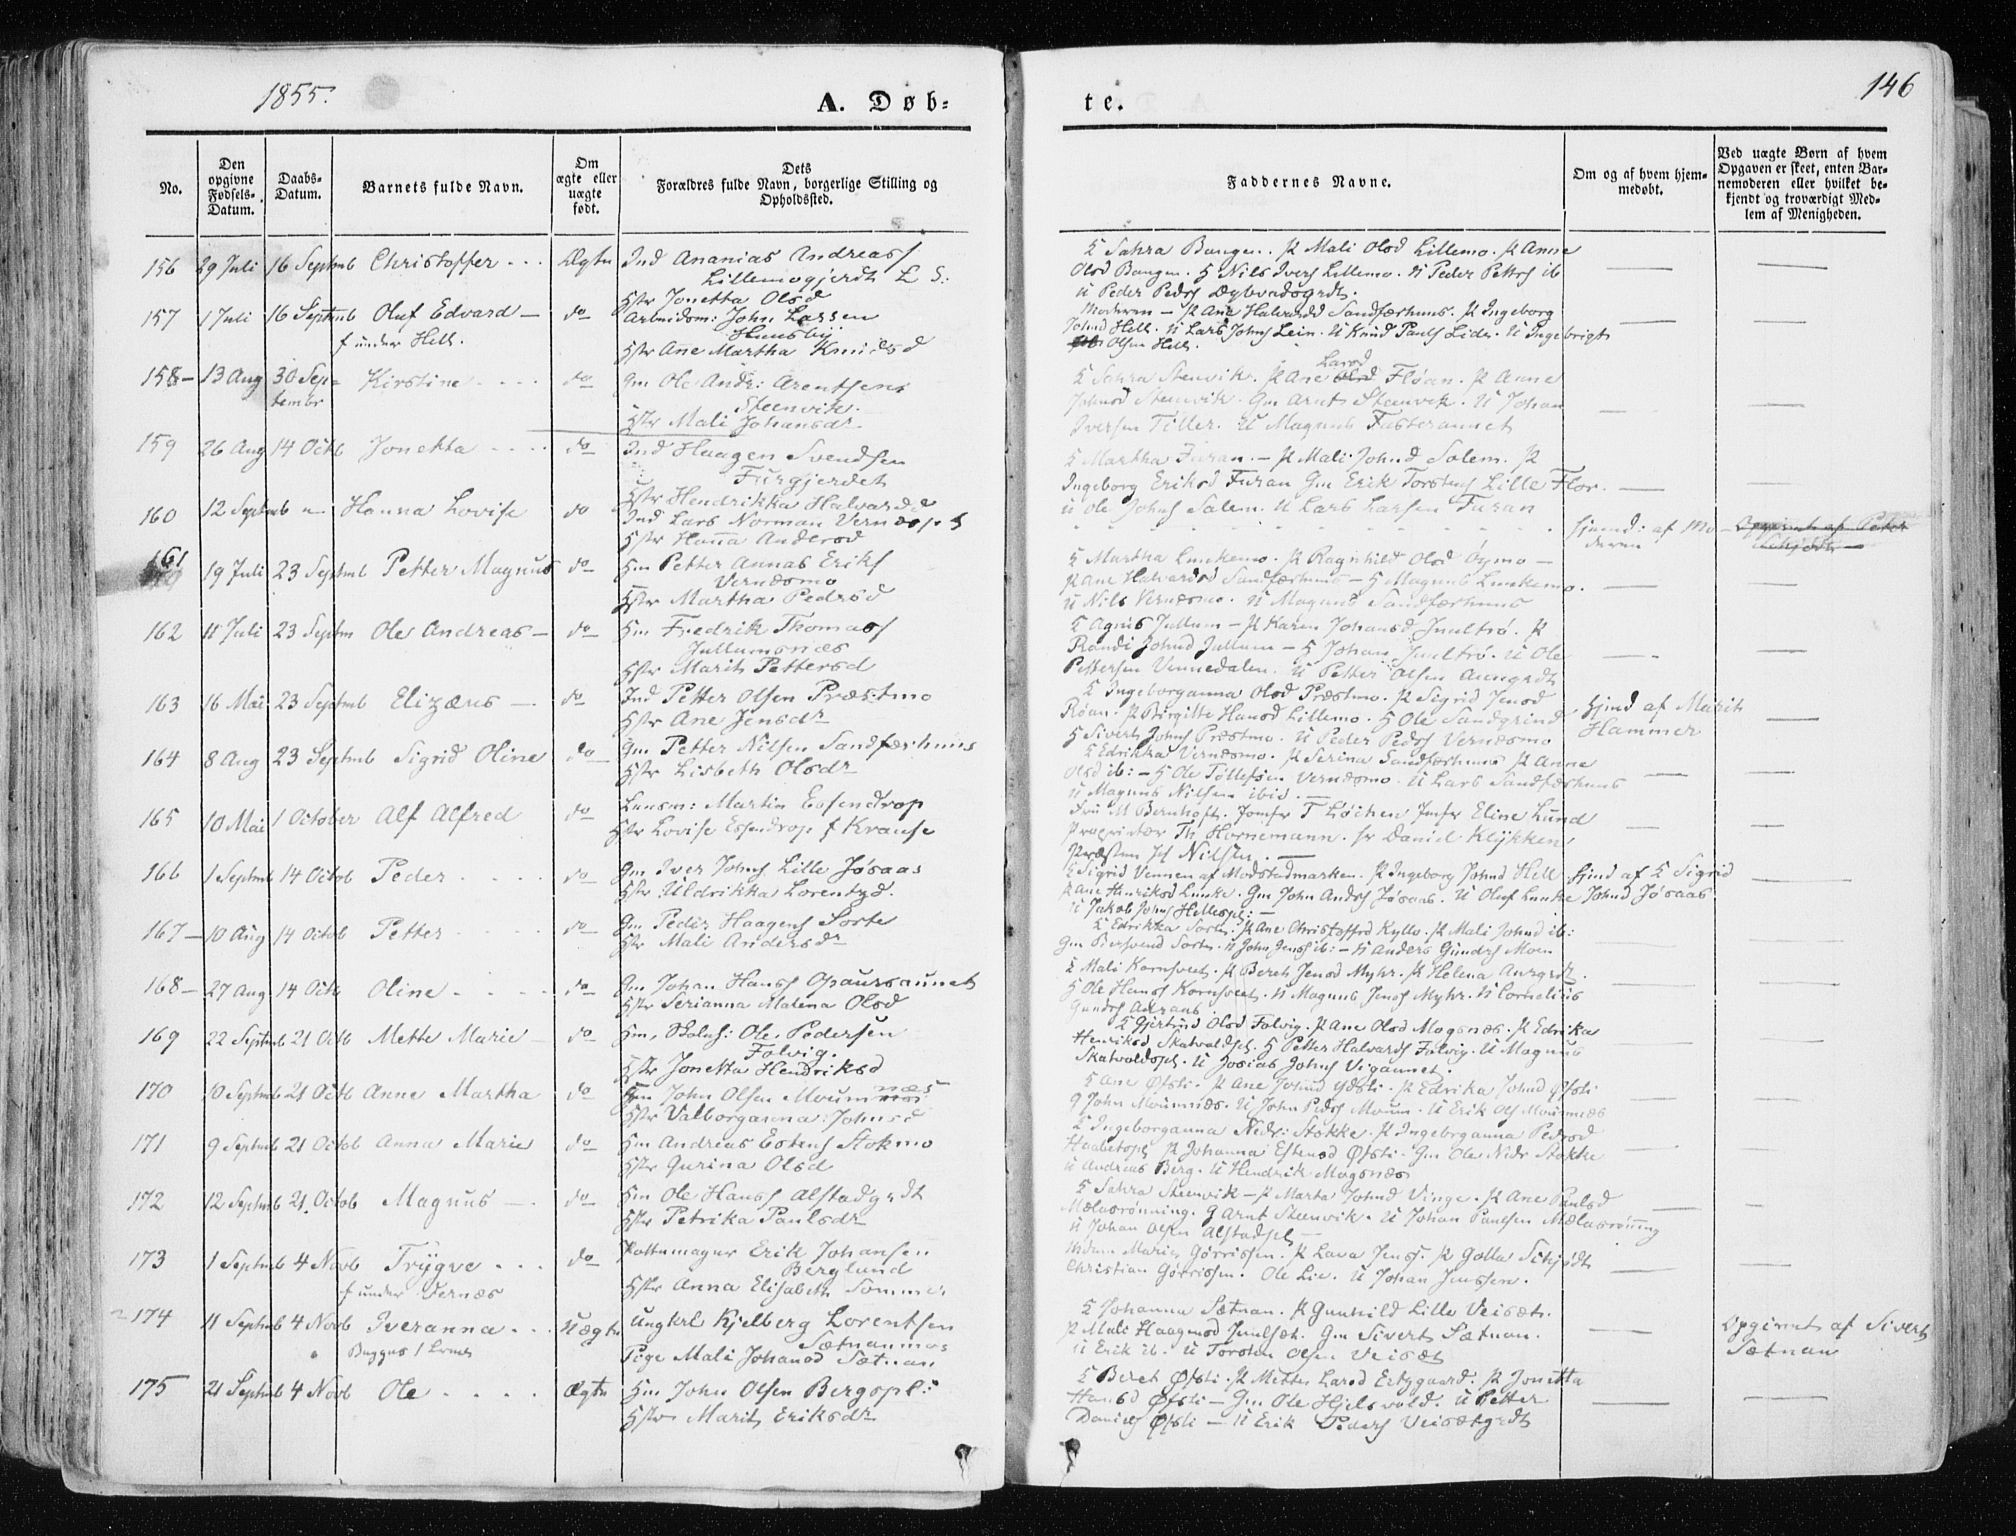 1855.
A. Døb-
te.
146
No.
Den opgivne Fødsels-Datum.
Daabs-Datum.
Barnets fulde Navn.
Om ægte eller uægte født.
Dets Forældres fulde Navn, borgerlige Stilling og Opholdssted.
Faddernes Navne.
Om og af hvem hjemmedøbt.
Ved uægte Børn af hvem Opgaven er skeet, enten Barnemoderen eller hvilket bekjendt og troværdigt Medlem af Menigheden.
156 29 Juli 16 Septmb Christoffer Ægte Ind Ananias Andreass
Lillemogjerdt
Hstr Jonetta Olsd
K Sahra Bangen. P Mali Olsd Lillemo. P Anne
Olsd Bangen. G Nils Ivers Lillemo. U Peder Petters ib
U Peder Peders Dybvadsgrdt.
157 1 Juli 16 Septmb Oluf Edvard do Arbeidsm: John Larsen
f under Hell.
Hstr Ane Martha Knudsd
Moderen - P Ane Halvardsd Sandfærhuus. P Ingeborg
Johnsd Hell. U Lars Johns Lein. U Knud Pauls Lider. U Ingebrigt
Olsen Hell.
158 13 Aug 30 Septembr Kirstine do Gm Ole Andr: Arentsen
Steenvik.
Hstr Mali Johansdr
K Sahra Steenvik. P Ane Larsd Fløan. P Anne
Johnsd Steenvik. Gm Arnt Steenvik. U Johan
Iversen Tiller. U Magnus Fasteraunet
159 26 Aug 14 Octb Jonetta do Ind Haagen Svendsen
Furgjerdet
Hstr Hendrikka Halvardsd
K Martha Furan. - P Mali Johnsd Salem. P
Ingeborg Eriksd Furan Gm Erik Torstens Lille Flor.
U Ole Johns Salem. U Lars Larsen Furan
160 12 Septmb Hanna Lovise do Ind Lars Norman Vernæspl
Hstr Hanna Andersd
hjemd: af Moderen
161 19 Juli 23 Septmb Petter Magnus do Hm Petter Annas Eriks
Vernæsmo
Hstr Martha Pedersd
K Martha Lunkemo. P Ragnhild Olsd Øymo -
P Ane Halvardsd Sandfærhuus - G Magnus Lunkemo.
U Nils Vernæsmo. U Magnus Sandfærhuus
162 11 Juli 23 Septm Ole Andreas do Hm Fredrik Thomass
Jullumsnæs
Hstr Marit Pettersd
K Agnes Jullum - P Karen Johansd
Randi Johnsd Jullum - G Johan
Pettersen Vennedalen. U Petter Olsen
163 16 Mai 23 Septmb Elizæus do Ind Petter Olsen Præstmo
Hstr Ane Jensdr
K Ingeborganna Olsd Præstmo. P Sigrid Jensd
Røan. P Birgitte Hansd Lillemo. G Ole Sandgrind
G Sivert Johns Præstmo. U Peder Peders Vernæsmo
hjmd af Marit
Hammer
164 8 Aug 23 Septmb Sigrid Oline do Gm Petter Nilsen Sandfærhuus
Hstr Lisbeth Olsdr
K Edrikka Vernæsmo. P Serina Sandfærhuus P Anne
Olsd ib: - G Ole Tollefsen Vernæsmo. U Lars Sandfærhuus
U Magnus Nilsen ibid. -
165 10 Mai 1 October Alf Alfred do Lensm: Martin Essendrop
Hstr Lovise Essendrop f Krause
Fru M Bernhoft. Jomfr T Løchen Jmfr Eline Lund
Proprietær Th Hornemann. Hr Daniel Klykken,
Præsten Nilsen.
166 1 Septmb 14 Octob Peder do Gm Iver Johns Lille Jøsaas
Hstr Uldrikka Lorentsd.
K Sigrid Vennen af Modstadmarken. P Ingeborg Johnsd Hell
P Ane Henriksd Lunke. Gm John Anders Jøsaas. U Oluf Lunke
U Jakob Johns Hellespl: -
hjmd af K Sigrid
Johnsd Jøsaas
167 10 Aug 14 Octob Petter do Gm Peder Haagens Sorte
Hstr Mali Andersdr
K Edrikka Sorte. P Ane Christoffersd Kyllo. P Mali Johnsd ib:
U John Jens ib: - U Anders Gunders Moen
168 27 Aug 14 Octb Oline do Gm Johan Hans
Hstr Serianna Malena Olsd
K Mali Kornsveet. P Beret Jensd Myhr. P Helena
G Ole Hans Kornsveet. U Magnus Jens Myhr. U Cornelius
169 22 Septmb 21 Octb Mette Marie do Hm, Skoleh: Ole Pedersen
Folvig.
Hstr Jonetta Hendriksd
K Gjertrud Olsd Folvig. P Ane Olsd Mogsnæs. P Edrika
Henriksd Skatvaldspl. G Petter Halvards Folvig. U Magnus
Skatvaldspl. U Josias Johns Vigaunet.
170 10 Septmb 21 Octb Anne Martha do Gm John Olsen Mvumnæs
Hstr Valborganna Johnsd
K Ane Øfsti. P Ane Johnsd Ydsti. P Edrika Johnsd Øfsti
G John Mvumnæs. U John Peders Mvum. U Erik Ols Mvumnæs
171 9 Septmb 21 Octob Anna Marie do Hm Andreas Estens Stokmo
Hstr Gurina Olsd
K Ingeborganna Nedr: Stokke. P Ingeborganna Pedersd
Haabetspl P Johanna Estensd Øfsti. Gm Ole Nedr Stokke
U Andreas Berg. U Hendrik Mogsnæs
172 12 Septmb 21 Octob Magnus do Hm Ole Hans Alstadgrdt
Hstr Petrika Paulsdr
K Sahra Steenvik - P Marta Johnsd Vinge. P Ane Paulsd
Mælasrønning. G Arnt Steenvik. U Johan Paulsen Mælasrønning
U Johan Olsen Alstadspl -
173 1 Septmb 4 Novb Trygve do Pottemager Erik Johansen
f under Vernæs
Berglund
Hstr Anna Elisabeth Sommer
Madam Maria Gørrissen. P Lava Jens. P Golla Schjødt
Christian Gørrissen. Ole Lie. U Johan Jenssen.
174 11 Septmb 4 Novb Iveranna Uægte Ungkrl Kjelberg Lorentsen
Sætnanmo
Pige Mali Johansd Sætnan
K Johanna Sætnan. P Gunhild Lille Veisæt.
P Mali Haagensd Gm Sivert Sætnan.
U Erik ib. U Torsten Olsen Veisæt
Opgivet af Sivert
Sætnan
175 21 Septmb 4 Novb Ole Ægte Hm John Olsen Bergspl:
Hstr Marit Eriksdr
K Beret Øfsti. P Mette Larsd Ertzgaard. P Jonetta
Hansd Øfsti - Gm Ole Hjelsvold. U Petter
Daniels Øfsti - U Erik Peders Veisætgrdt